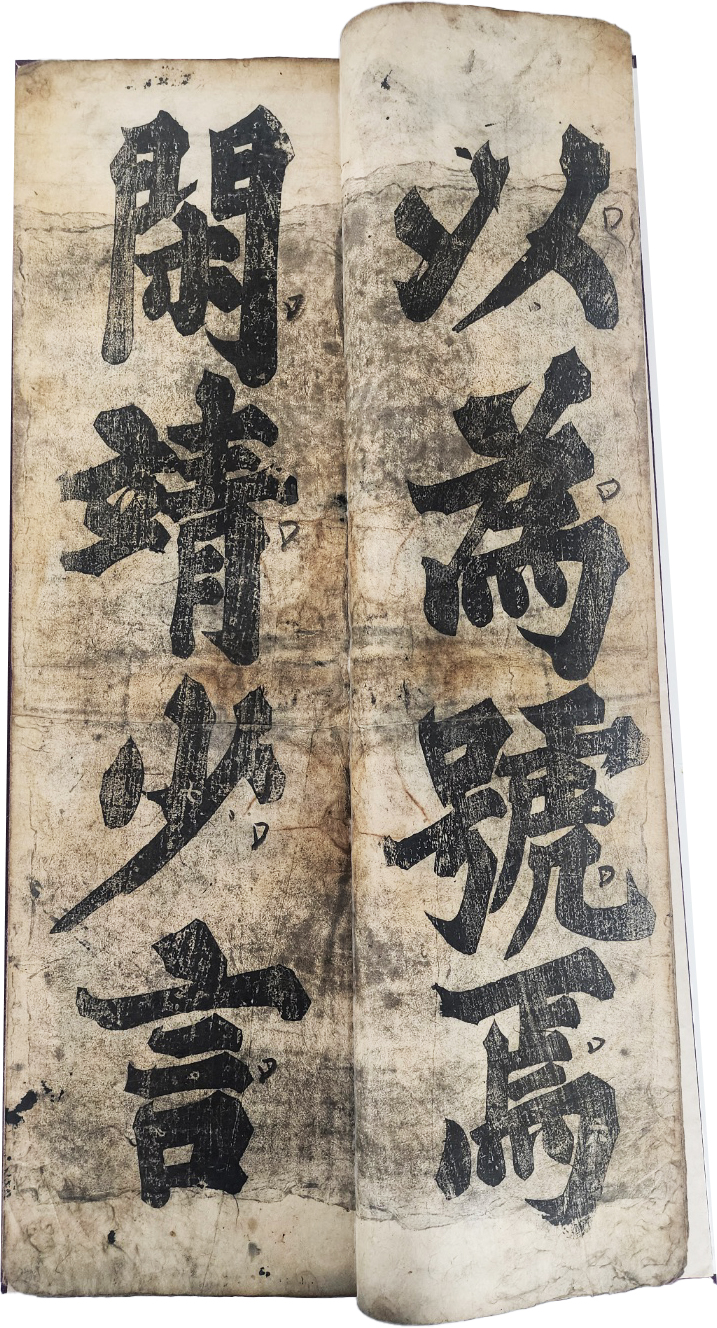 以為號焉
閑靖少言